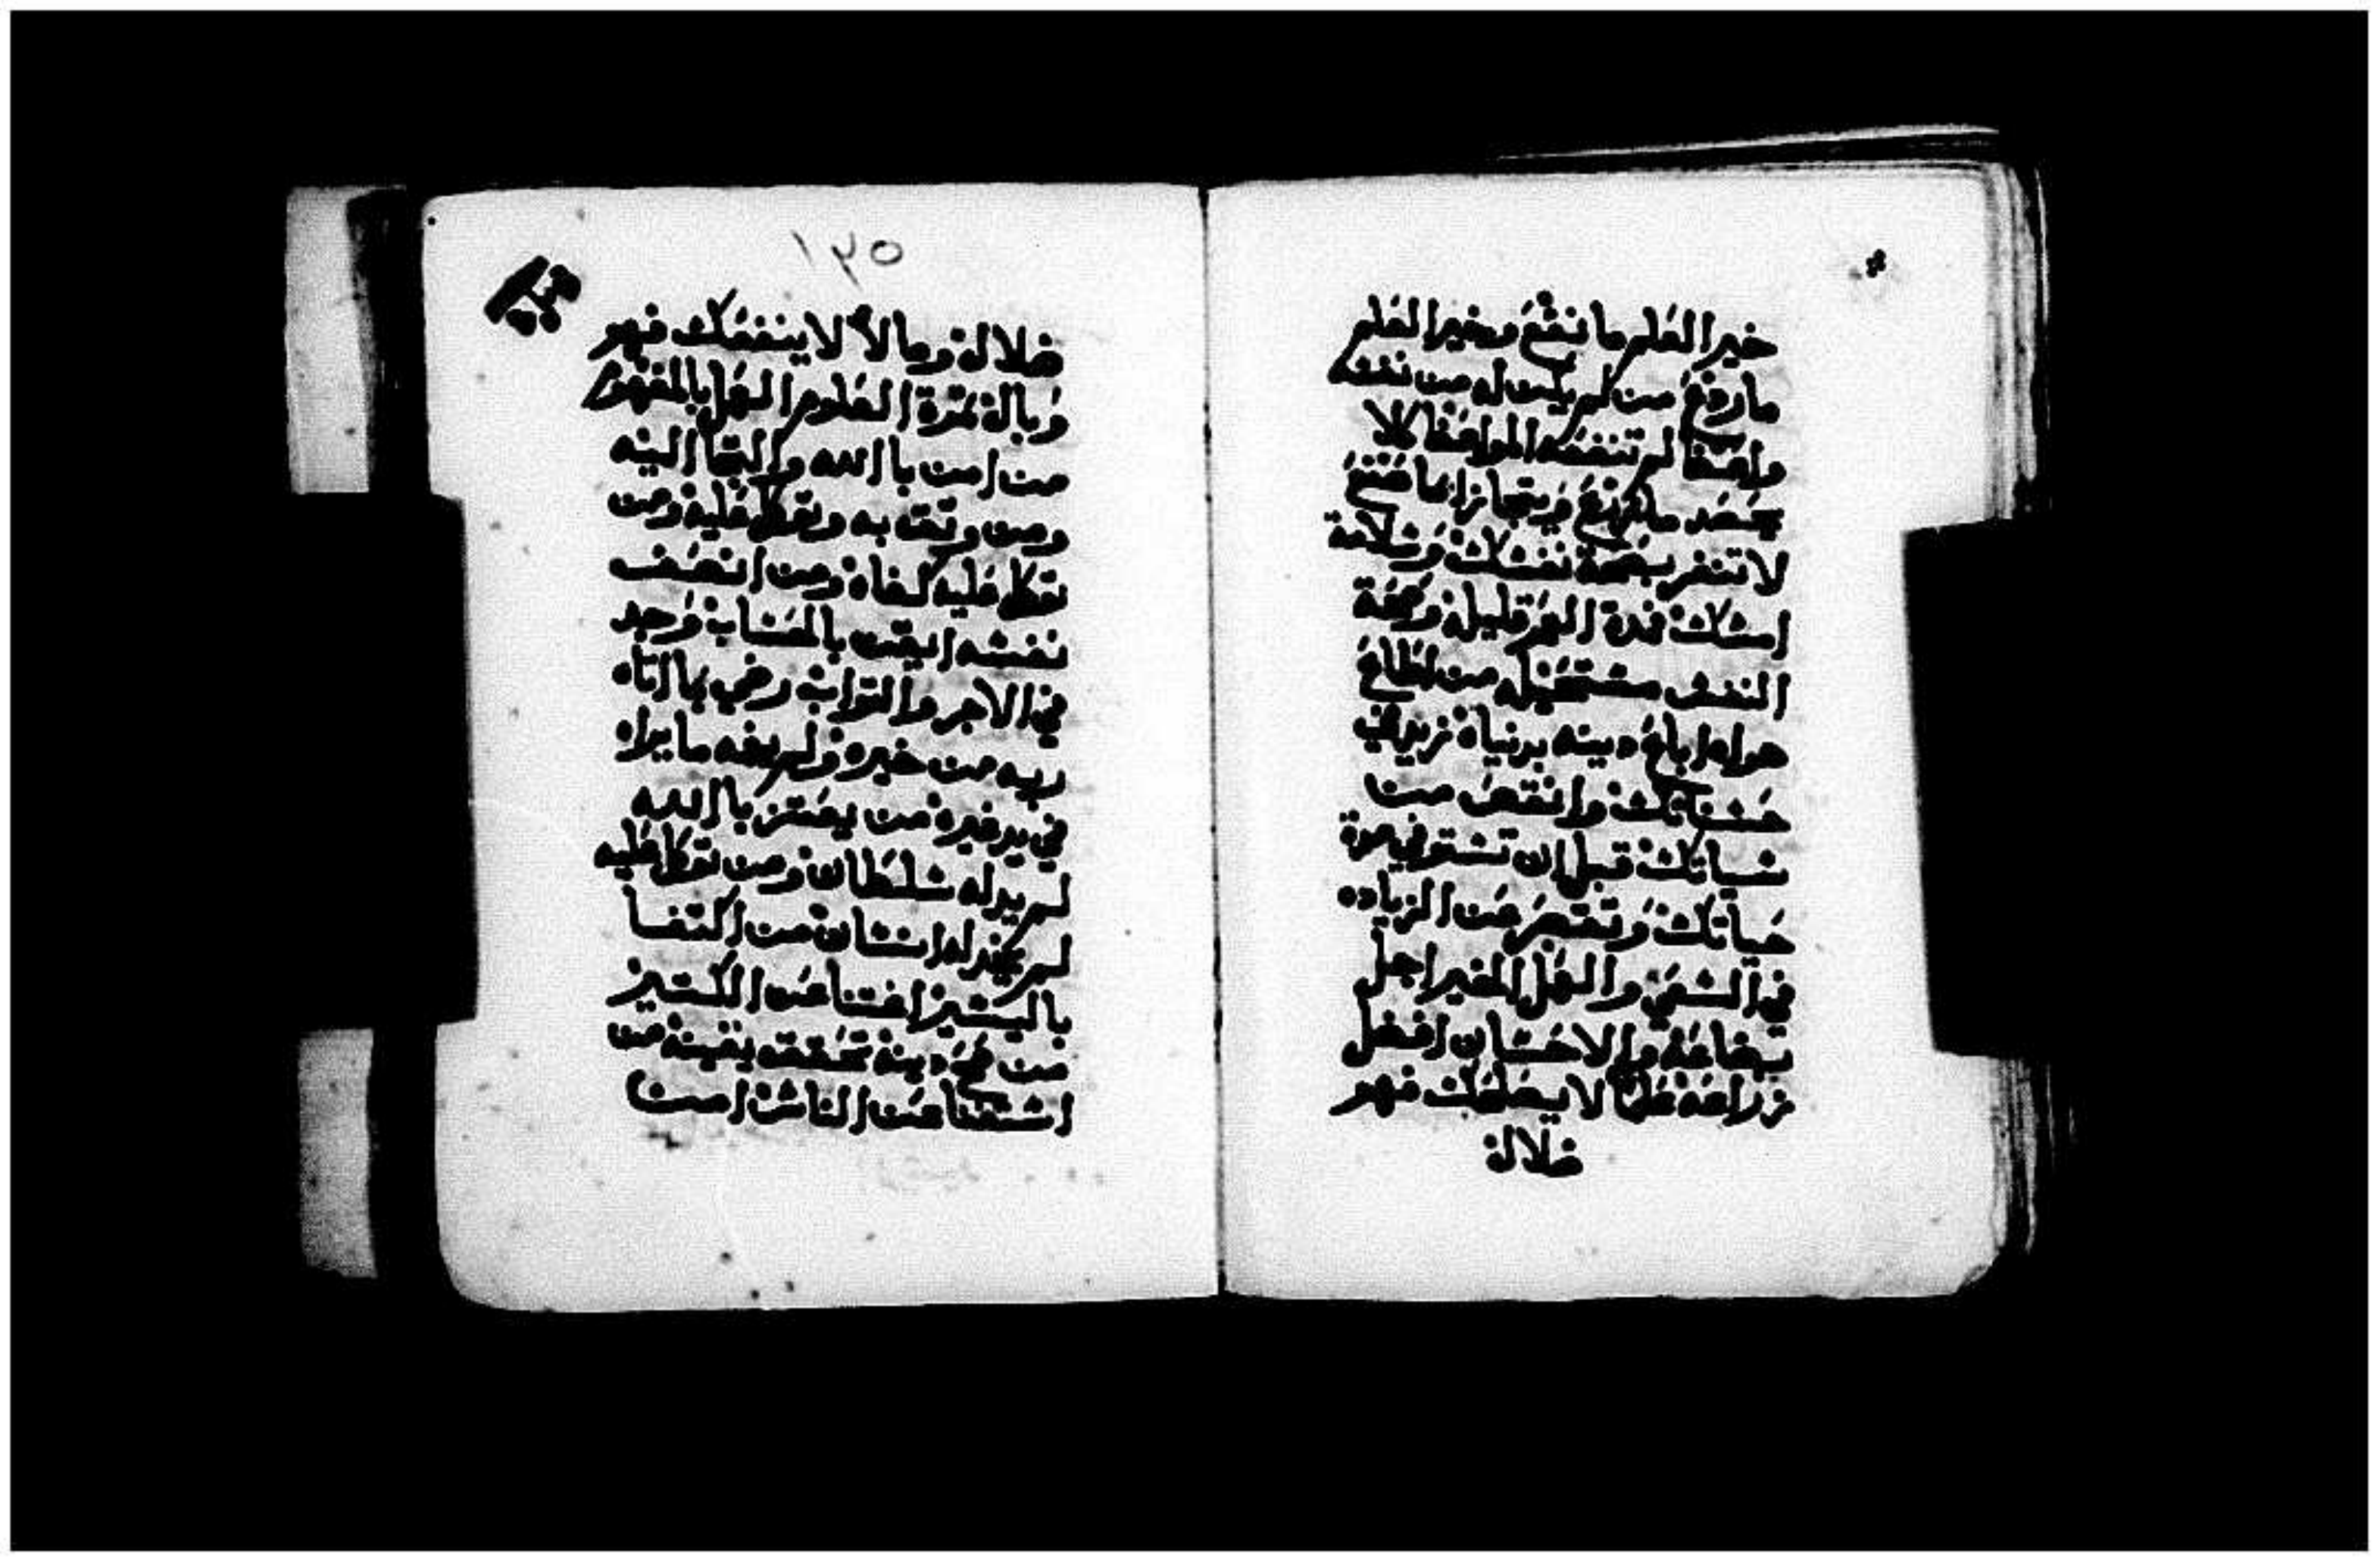 خير العلم ما نفع وخير العلم
ما ردع من لم يكن له من نفسه
واعظا لم تنفعه المواعظ كلا
يحصد ما يزرع ويتجازا بما صنع
لا تنغر بصحة نفسك وسلامة
امسك فمدة العمر قليله وصحة
النفس مستحيله من اطاع
هواه اباع دينه بدنياه زيد في
حسناتك وانقص من
سياتك قبل ان تستوفي مدة
حياتك وتقصر عن الزياده
في السعي والفعل الخير اجل
بضاعة والاحسان افضل
زراعه علما لا يصلحك فهو
ضلاله
١٢٥
ضلاله ومالا لا ينفعك فهو
وباله ثمرة العلوم العمل بالمفهوم
من امن بالله والتجا اليه
ومن وثق به وتوكل عليه ومن
توكل عليه كفاه ومن انصف
نفسه ايقن بالحساب وجد
في الاجر والثواب رضي بما اتاه
ربه من خيره ولم يغمه ما يراه
في يد غيره من يعتز بالله
لم يذله سلطان ومن توكل عليه
لم يضر له انسان من اكتفا
باليسير اغتنا عن الكتير
من صح دينه تحقق يقينه من
استغنا عن الناس امن